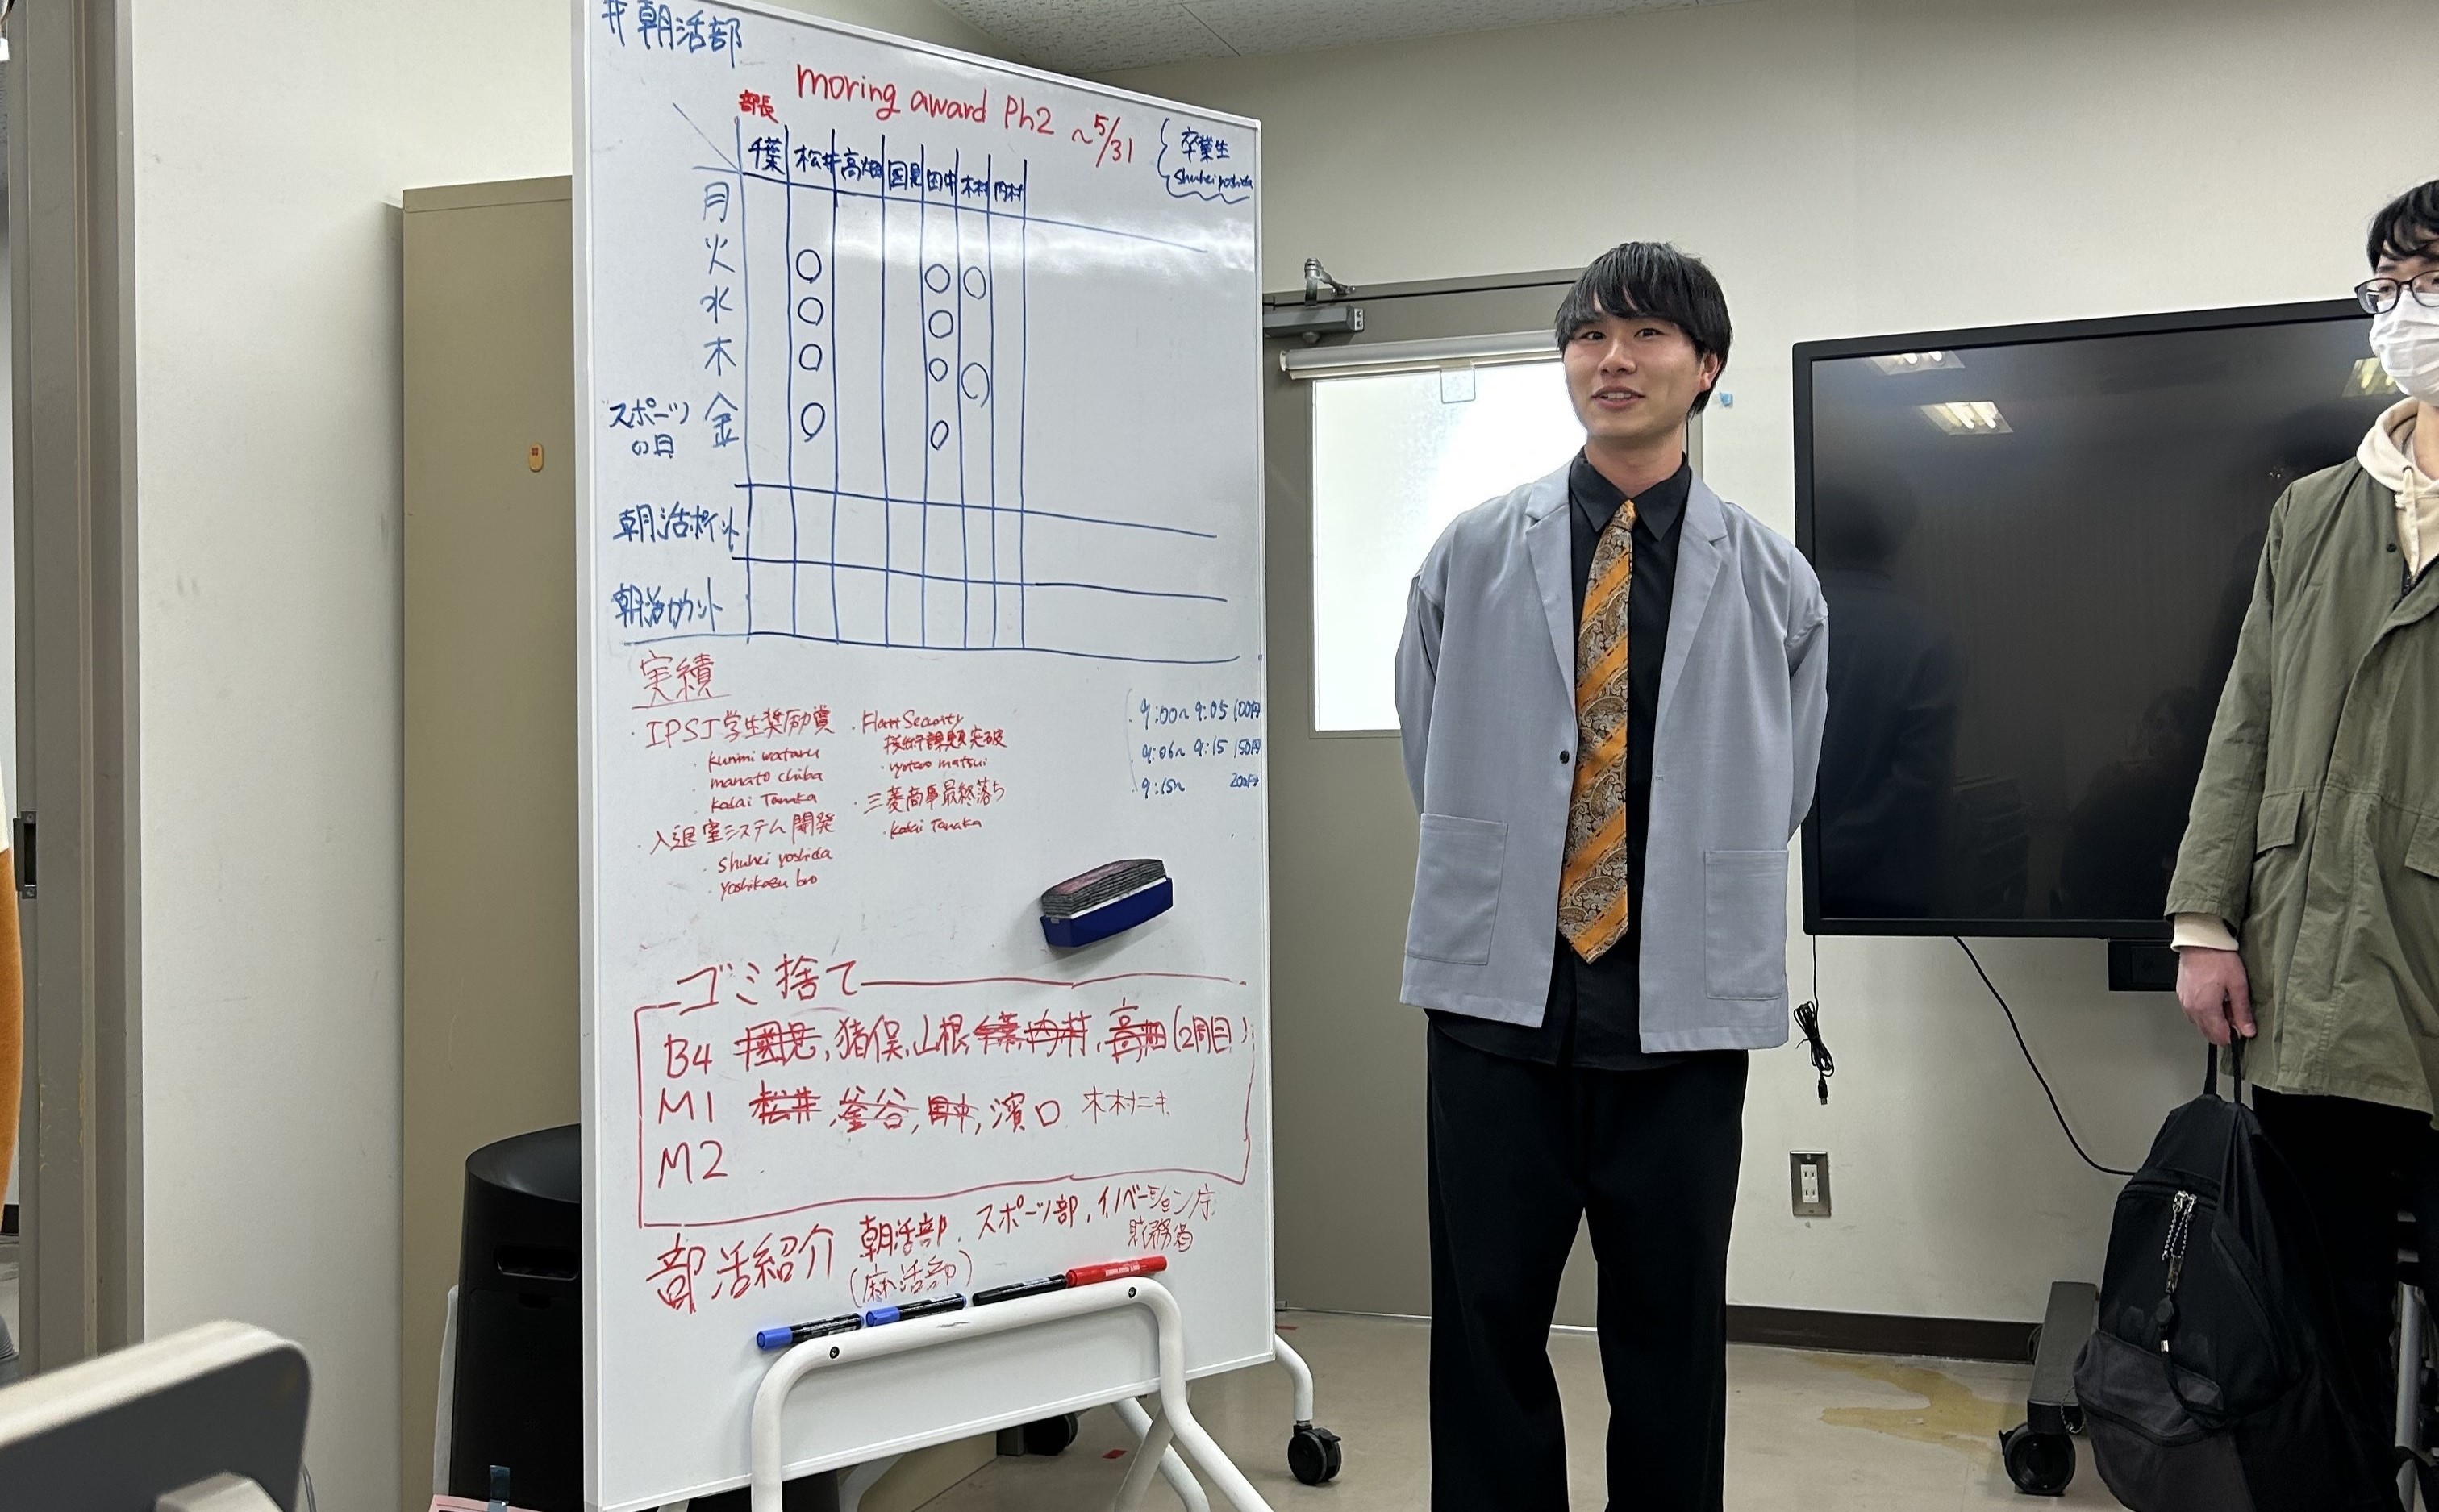 #朝活部
moring award Ph2 ~5/31
部長
卒業生
shuhei yoshida
千葉 松井 高畑 国見 田中 木村 内村
月
火 ○ ○ ○
水 ○ ○
木 ○ ○ ○
スポーツの日 金 ○ ○
朝活ポイント
朝活カウント
実績
・IPSJ学生奨励賞
・kunimi wataru
・manato chiba
・kodai Tanaka
・入退室システム開発
・shuhei yoshida
・yoshikazu
・Flatt Security
技術課題突破
・ryotaro matsui
・三菱商事最終落ち
・kodai Tanaka
・9:00~9:05 100円
・9:06~9:15 150円
9:15~ 200円
ゴミ捨て
B4 國見, 猪俣, 山根, 千葉, 内村, 高畑 (2周目)
M1 松井, 釜谷, 田中, 濱口 木村ニキ
M2
部活紹介 朝活部, スポーツ部, イノベーション庁
財務省
(麻活部)